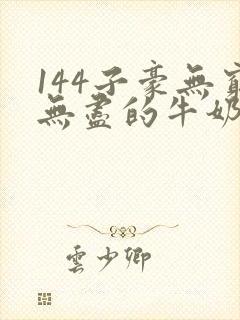 144子豪無窮
無盡的牛奶
雲少卿